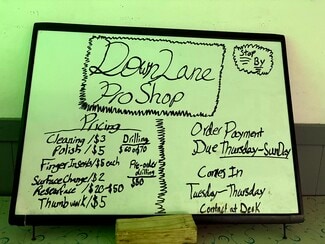 Down Lane
Pro Shop
Stop
By
Pricing
Cleaning /$3
Polish /$5
Finger Inserts/$6 each
Surface Change/$2
Resurface /$20-$50
Thumb work/$5
Drilling
$60 or $70
Pre-order
drilling
$50
Order Payment
Due Thursday-Sunday
Comes In
Tuesday-Thursday
Contact at Desk